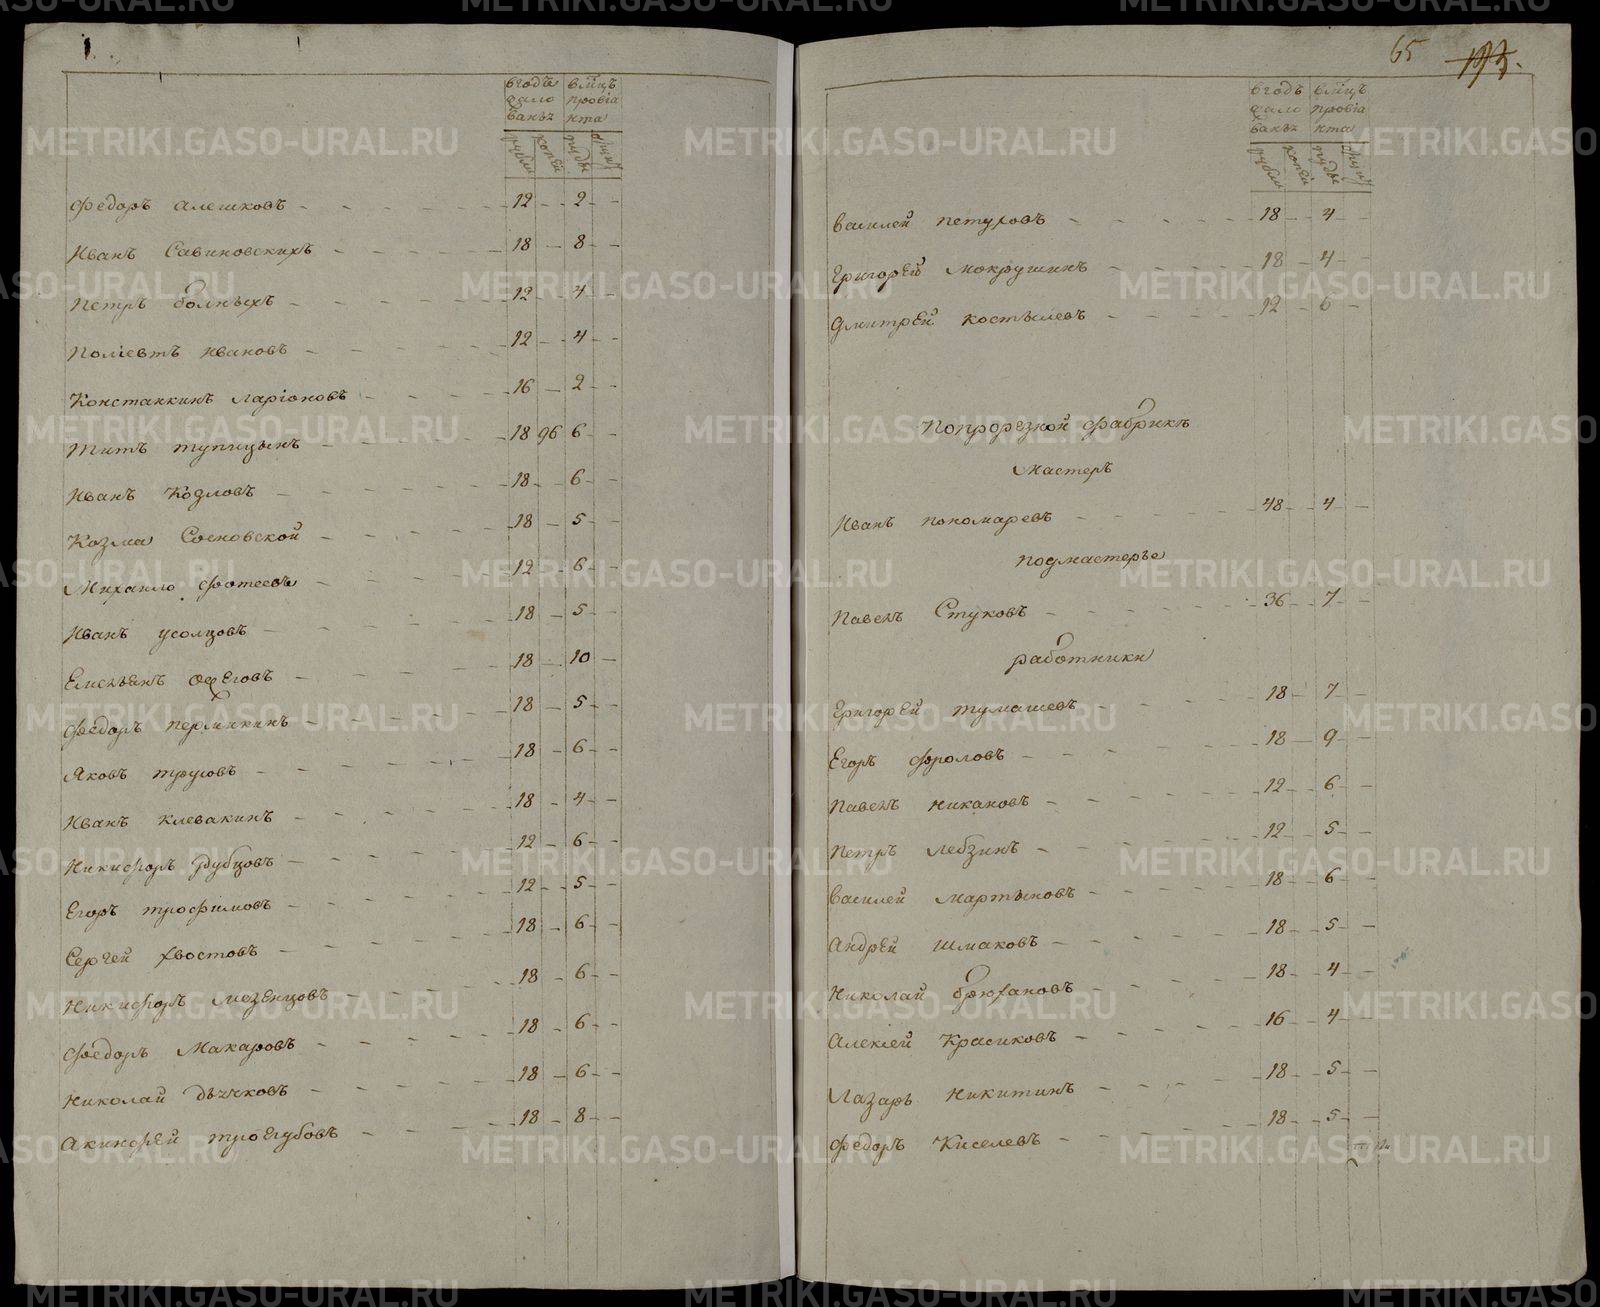 вгодъ вмцъ
жало провіа
ванья нта
рубли копей пуды фунт
Федоръ Алешковъ 12 2
Иванъ Савиновскихъ 18 8
Петръ болныхъ 12 4
Поліевтъ Ивановъ 12 4
Констанкинъ Ларіоновъ 16 2
Титъ тупицынъ 18 96 6
Иванъ Козловъ 18 6
Козма Сосновской 18 5
Михаило Фотеевъ 12 6
Иванъ усолцовъ 18 5
Емельянъ Ожеговъ 18 10
Федоръ пермикинъ 18 5
Яковъ трусовъ 18 6
Иванъ клевакинъ 18 4
Никифоръ рубцовъ 12 6
Егоръ трофимовъ 12 5
Сергей хвостовъ 18 6
Никифоръ мезенцовъ 18 6
Федоръ Макаровъ 18 6
Николай дьячковъ 18 6
Акинфей троегубовъ 18 8
65
вгодъ вмцъ
жало провіа
ванья нта
рубли копей пуды фунт
Василей петуховъ 18 4
Григорей мокрушинъ 18 4
Дмитрей костылевъ 12 6
Попрорезной фабрике
мастеръ
Иванъ пономаревъ 48 4
подмастерье
Павелъ Стуковъ 36 7
работники
Григорей тумашевъ 18 7
Егоръ фроловъ 18 9
Павелъ никановъ 12 6
Петръ лебзинъ 12 5
Василей мартыновъ 18 6
Андрей шмаковъ 18 5
Николай брюхановъ 18 4
Алексей Красиковъ 16 4
Лазарь никитинъ 18 5
Федоръ Киселевъ 18 5
METRIKI.GASO-URAL.RU